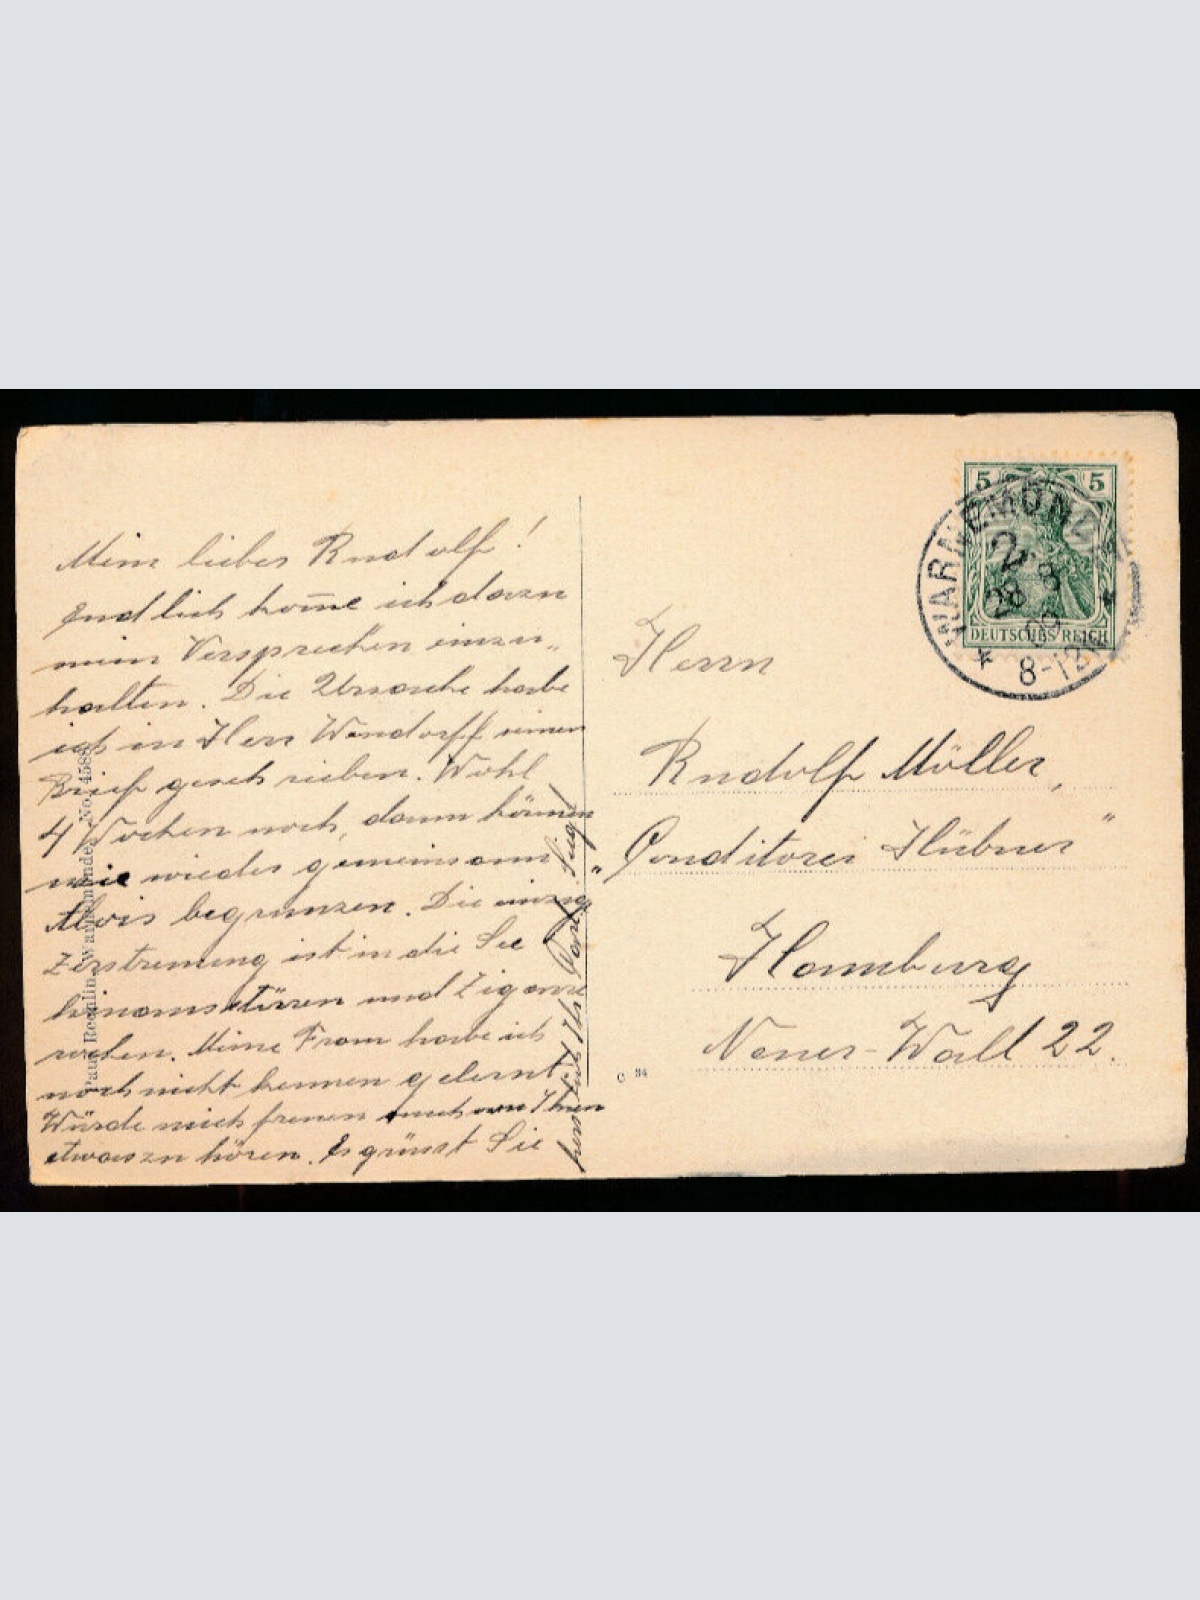 Mein lieber Rudolf!
Endlich kom̄e ich dazu
mein Versprechen einzu„
halten. Die Ursache habe
ich in Herr Wendorff seinen
Brief geschrieben. Wohl
4 Wochen noch, dann können
wir wieder gemeinsam
Alois begrunzen. Die einzig
Zerstreuung ist in die See
hinausstieren und Zigarre
rochen. Meine Frau habe ich
noch nicht kennen gelernt.
Würde mich freuen auch von Ihnen
etwas zu hören. Es grüsst Sie
herzlich Ihr
Paul Rechlin, Warnemünde. No. 4588
5 5
DEUTSCHES REICH
WARNEMÜNDE
2
28 8
09
8-12V
Herrn
Rudolf Möller,
„Conditorei Hübner"
Hamburg
Neuer-Wall 22.
C 34